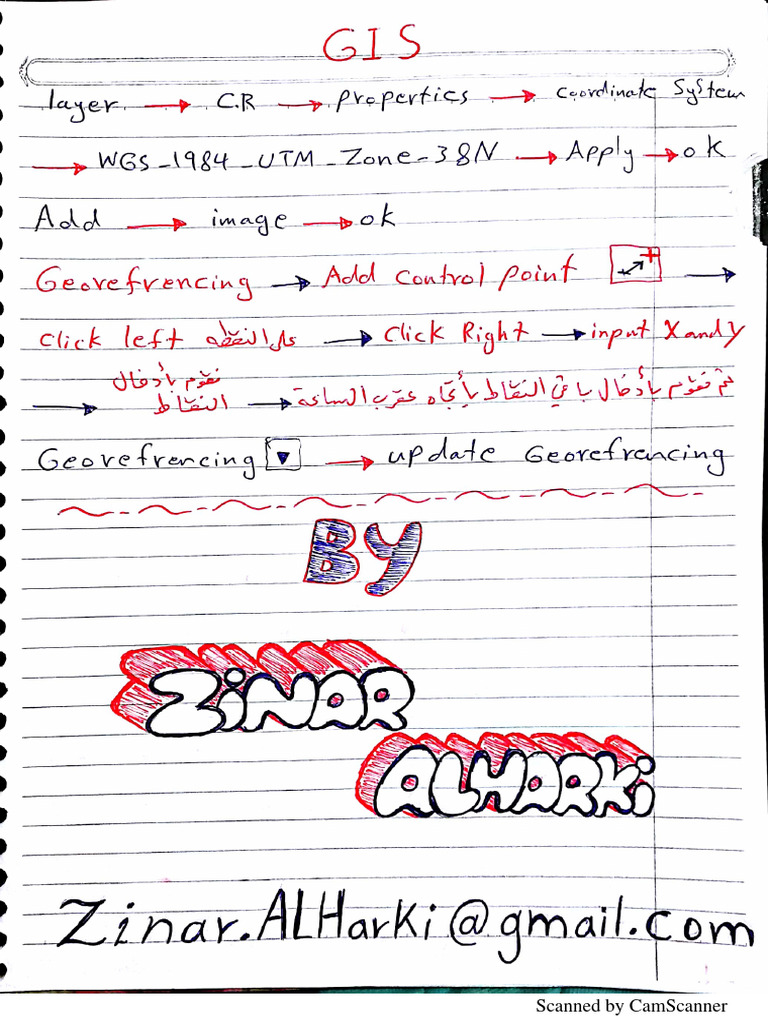 GIS
layer → C.R → properties → coordinate System
→ WGS_1984_UTM_Zone_38N → Apply → ok
Add → image → ok
Georefrencing → Add control point →
click left على النقطه → click Right → input X and Y
→ نقوم بأدخال النقاط → ثم نقوم بأدخال باقي النقاط بأتجاه عقرب الساعة
Georefrencing → update Georefrencing
BY
ZiNAR
ALHARKi
Zinar.ALHarki@gmail.com
Scanned by CamScanner